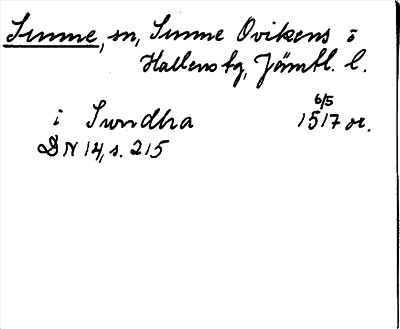 Sunne, sn, Sunne Ovikens o
Hallens tg, Jämtl. l.
i Swndha 6/5 1517 or.
DN 14, s. 215